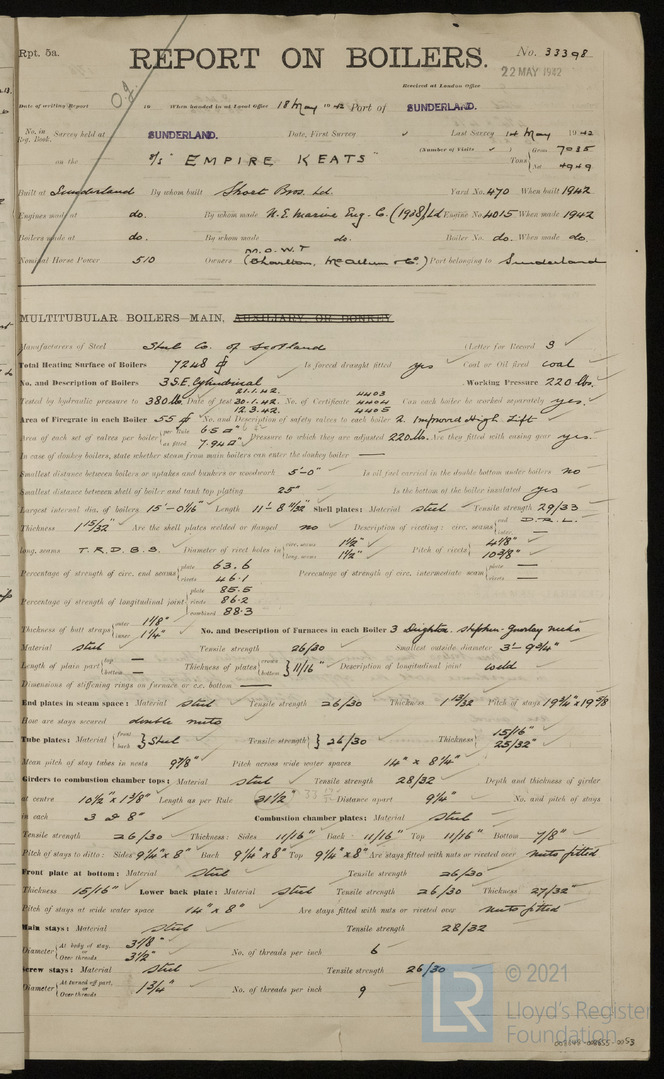 Rpt. 5a.
REPORT ON BOILERS.
No. 33398
22 MAY 1942
Received at London Office
Date of writing Report 19 When handed in at Local Office 18 May 1942 Port of SUNDERLAND.
No. in Reg. Book. Survey held at SUNDERLAND. Date, First Survey ✓ Last Survey 14 May 1942
on the S/S "EMPIRE KEATS" (Number of Visits ✓ ) Tons { Gross 7035 Net 4949
Built at Sunderland By whom built Short Bros. Ld. Yard No. 470 When built 1942
Engines made at do. By whom made N. E. Marine Eng. Co. (1938) Ld Engine No. 4015 When made 1942
Boilers made at do. By whom made do. Boiler No. do. When made do.
Nominal Horse Power 510 Owners M.O.W.T (Charlton, McAllum & Co.) Port belonging to Sunderland
MULTITUBULAR BOILERS MAIN, AUXILIARY OR DONKEY
Manufacturers of Steel Steel Co. of Scotland (Letter for Record S
Total Heating Surface of Boilers 7248 Is forced draught fitted yes Coal or Oil fired coal
No. and Description of Boilers 3 S.E. Cylindrical Working Pressure 220 lbs.
Tested by hydraulic pressure to 380 lbs Date of test 21.1.42. 30.1.42. 12.3.42. No. of Certificate 4403 4404 4405 Can each boiler be worked separately yes.
Area of Firegrate in each Boiler 55 No. and Description of safety valves to each boiler 2. Improved High Lift
Area of each set of valves per boiler { per Rule 6.5 as fitted 7.94 Pressure to which they are adjusted 220 lb. Are they fitted with easing gear yes.
In case of donkey boilers, state whether steam from main boilers can enter the donkey boiler —
Smallest distance between boilers or uptakes and bunkers or woodwork 5'-0" Is oil fuel carried in the double bottom under boilers no
Smallest distance between shell of boiler and tank top plating 25" Is the bottom of the boiler insulated yes
Largest internal dia. of boilers 15'-0 1/16" Length 11'-8 11/32" Shell plates: Material steel Tensile strength 29/33
Thickness 1 15/32" Are the shell plates welded or flanged no Description of riveting: circ. seams { end D.R.L. inter. —
long. seams T.R.D.B.S. Diameter of rivet holes in { circ. seams 1 1/2" long. seams 1 1/2" Pitch of rivets { 4 1/8" 10 3/8"
Percentage of strength of circ. end seams { plate 63.6 rivets 46.1 Percentage of strength of circ. intermediate seam { plate — rivets —
Percentage of strength of longitudinal joint { plate 85.5 rivets 86.2 combined 88.3
Thickness of butt straps { outer 1 1/8" inner 1 1/4" No. and Description of Furnaces in each Boiler 3 Deighton. Stephen-Gourlay necks
Material steel Tensile strength 26/30 Smallest outside diameter 3'-9 3/4"
Length of plain part { top — bottom — Thickness of plates { crown bottom } 11/16" Description of longitudinal joint weld
Dimensions of stiffening rings on furnace or c.c. bottom —
End plates in steam space: Material steel Tensile strength 26/30 Thickness 1 13/32 Pitch of stays 19 3/4" x 19 5/8
How are stays secured double nuts
Tube plates: Material { front back } Steel Tensile strength } 26/30 Thickness { 15/16" 25/32"
Mean pitch of stay tubes in nests 9 7/8" Pitch across wide water spaces 14" x 8 1/4"
Girders to combustion chamber tops: Material steel Tensile strength 28/32 Depth and thickness of girder
at centre 10 1/2" x 1 3/8" Length as per Rule 31 1/2" Distance apart 9 1/4" No. and pitch of stays
in each 3 @ 8" Combustion chamber plates: Material steel
Tensile strength 26/30 Thickness: Sides 11/16" Back 11/16" Top 11/16" Bottom 7/8"
Pitch of stays to ditto: Sides 9 1/4" x 8" Back 9 1/4" x 8" Top 9 1/4" x 8" Are stays fitted with nuts or riveted over nuts fitted
Front plate at bottom: Material steel Tensile strength 26/30
Thickness 15/16" Lower back plate: Material steel Tensile strength 26/30 Thickness 27/32"
Pitch of stays at wide water space 14" x 8" Are stays fitted with nuts or riveted over nuts fitted
Main stays: Material steel Tensile strength 28/32
Diameter { At body of stay, or Over threads 3 1/8" 3 1/2" No. of threads per inch 6
Screw stays: Material steel Tensile strength 26/30
Diameter { At turned off part, or Over threads 1 3/4" No. of threads per inch 9
LR
© 2021
Lloyd's Register
Foundation